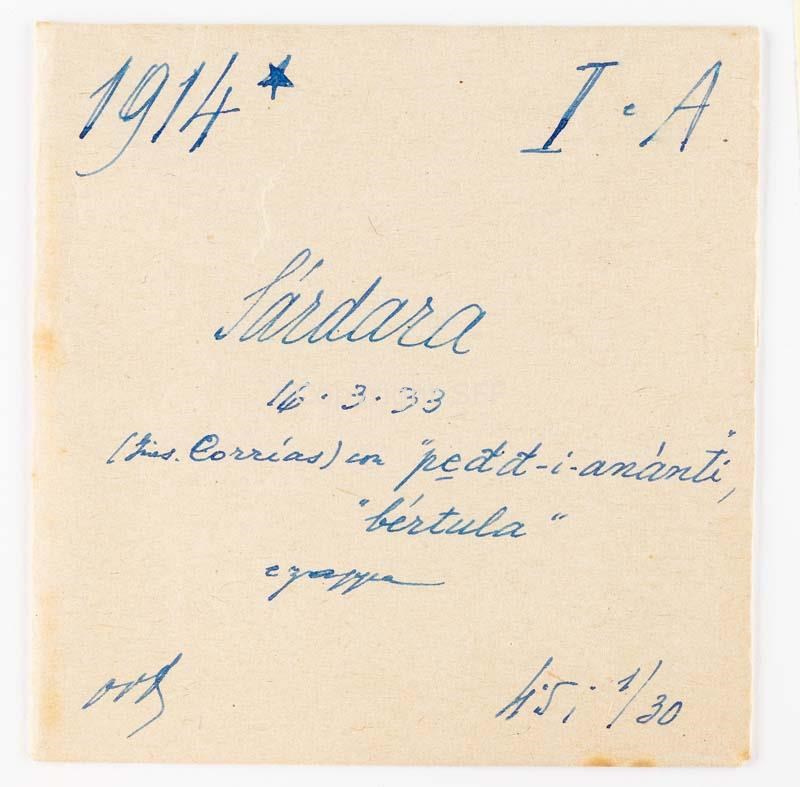 1914 ★ I · A.
Sárdara
14 · 3 · 33
(Corrías) con "pẹđđ-i-anánti",
"bértula"
e zappa
4.5 ; 1/30